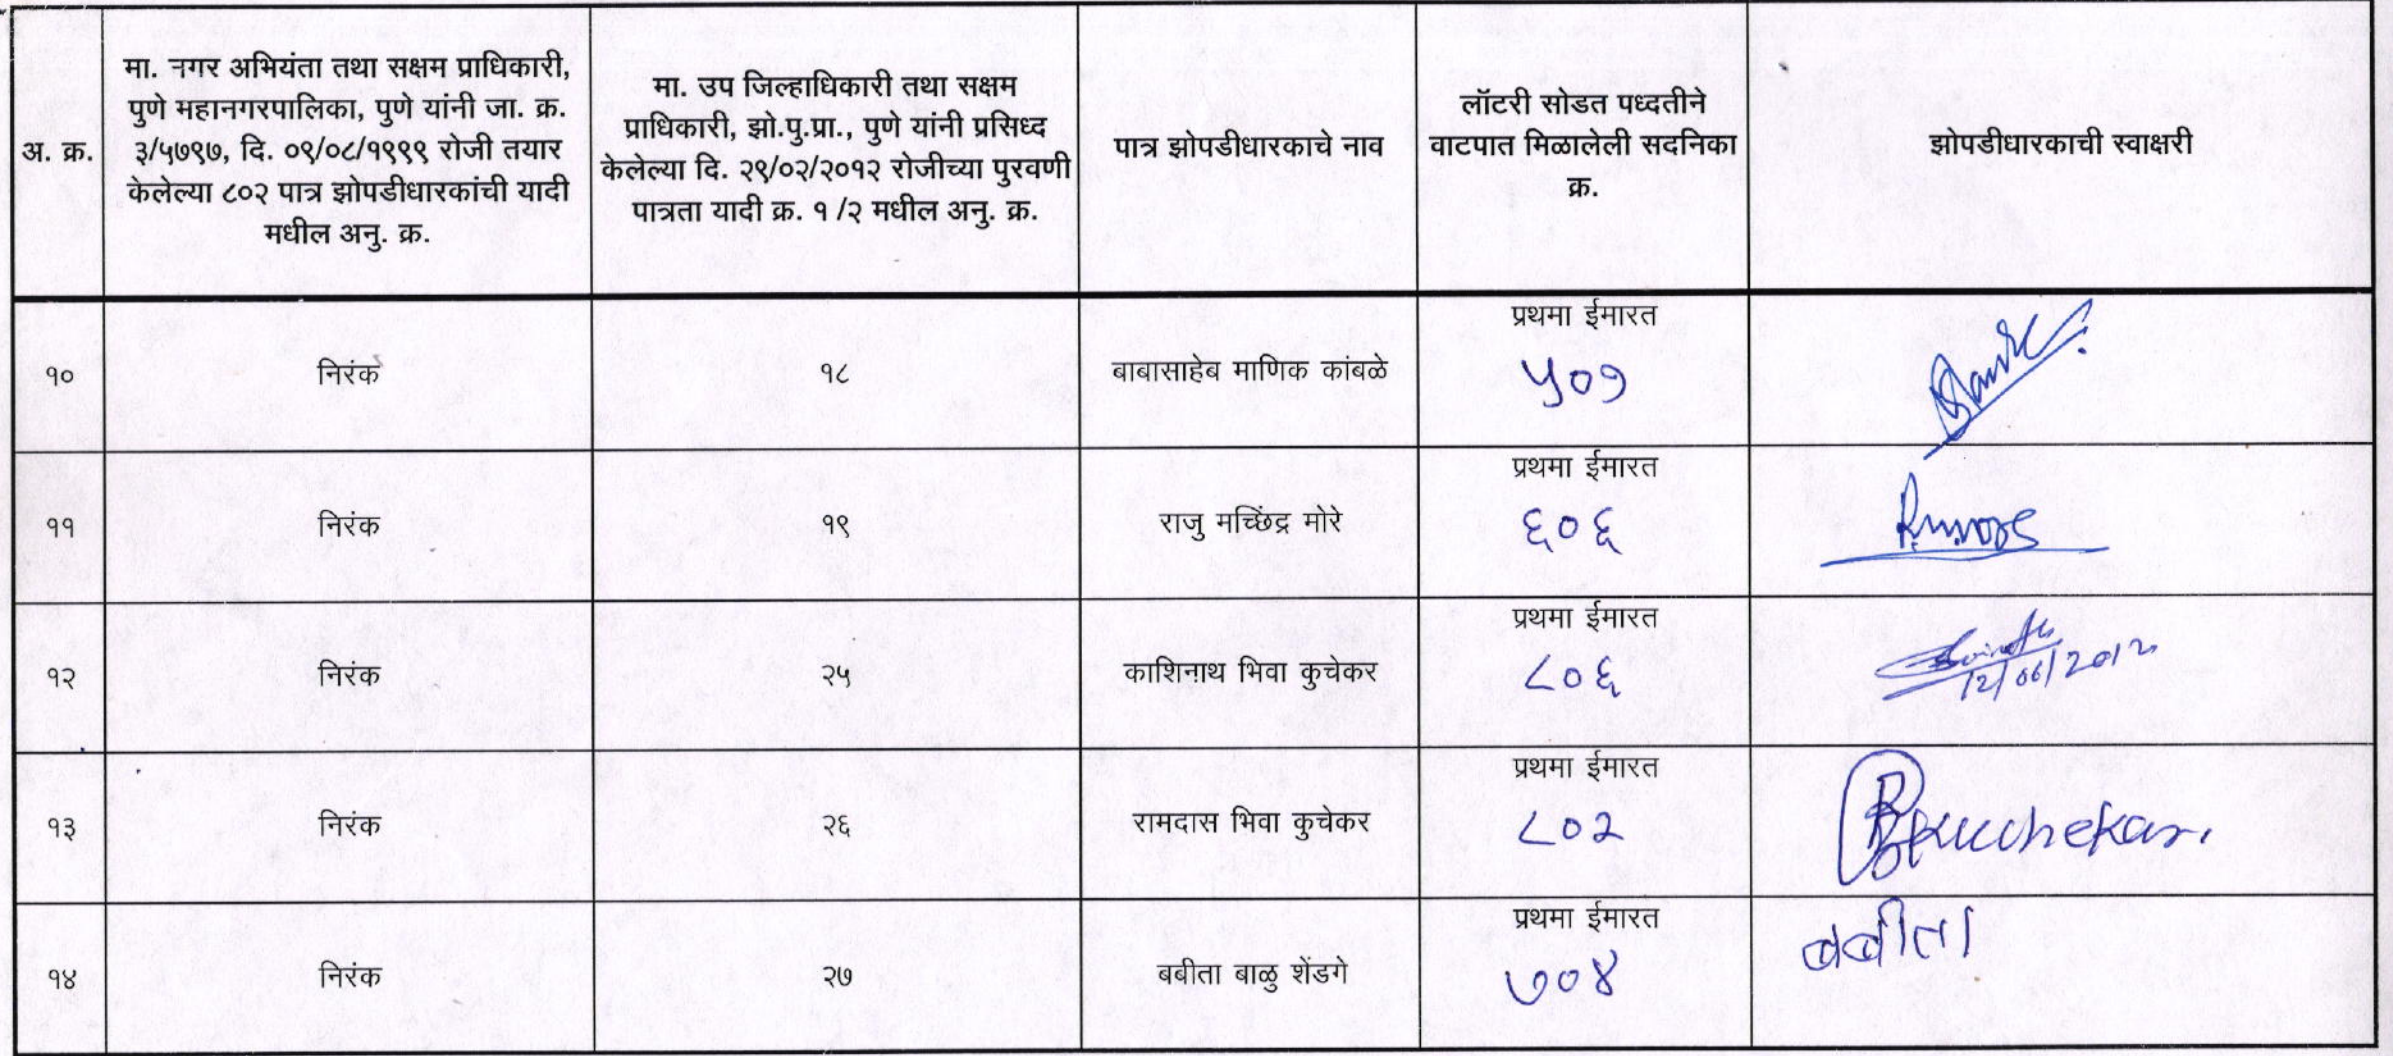 अ. क्र.
मा. नगर अभियंता तथा सक्षम प्राधिकारी,
पुणे महानगरपालिका, पुणे यांनी जा. क्र.
३/५७९७, दि. ०९/०८/१९९९ रोजी तयार
केलेल्या ८०२ पात्र झोपडीधारकांची यादी
मधील अनु. क्र.
मा. उप जिल्हाधिकारी तथा सक्षम
प्राधिकारी, झो.पु.प्रा., पुणे यांनी प्रसिध्द
केलेल्या दि. २९/०२/२०१२ रोजीच्या पुरवणी
पात्रता यादी क्र. १/२ मधील अनु. क्र.
पात्र झोपडीधारकाचे नाव
लॉटरी सोडत पध्दतीने
वाटपात मिळालेली सदनिका
क्र.
झोपडीधारकाची स्वाक्षरी
१०
निरंक
१८
बाबासाहेब माणिक कांबळे
प्रथमा ईमारत
५०७
११
निरंक
१९
राजु मच्छिंद्र मोरे
प्रथमा ईमारत
६०६
१२
निरंक
२५
काशिनाथ भिवा कुचेकर
प्रथमा ईमारत
८०६
12/06/2012
१३
निरंक
२६
रामदास भिवा कुचेकर
प्रथमा ईमारत
८०२
RBKuchekar.
१४
निरंक
२७
बबीता बाळु शेंडगे
प्रथमा ईमारत
७०४
बबीता